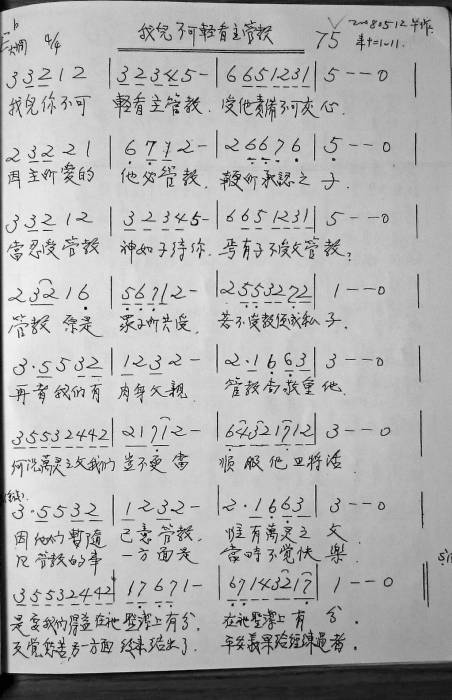 我兒不可輕看主管教
75
20080512
4/4
3 3 2 1 2 | 3 2 3 4 5 - | 6 6 5 1 2 3 1 | 5 - - 0
我兒你不可 輕看主管教. 受他責備不可灰心.
2 3 2 2 1 | 6 7 1 2 - | 2 6 6 7 6 | 5 - - 0
因主所愛的 他必管教. 鞭所承認之子.
3 3 2 1 2 | 3 2 3 4 5 - | 6 6 5 1 2 3 1 | 5 - - 0
當忍受管教 神如子待你. 焉有子不受父管教?
2 3 2 1 6 | 5 6 7 1 2 - | 2 5 5 3 2 7 2 | 1 - - 0
管教 原是 眾子所共受. 若不受教便成私子.
3 · 5 5 3 2 | 1 2 3 2 - | 2 · 1 6 6 3 | 3 - - 0
再者我們有 肉身父親. 管教尚敬重他.
3 5 5 3 2 4 4 2 | 2 1 7 1 2 - | 6 4 3 2 1 7 1 2 | 3 - - 0
何況萬靈之父我們 豈不更當 順服他 得活.
3 · 5 5 3 2 | 1 2 3 2 - | 2 · 1 6 6 3 | 3 - - 0
因他們暫隨 己意管教. 惟有萬靈之父
凡管教的事 一方面是 當時不覺快樂.
3 5 5 3 2 4 4 2 | 1 7 6 7 1 - | 6 7 1 4 3 2 1 7 | 1 - - 0
是要我們得益在祂聖潔上有分. 在祂聖潔上有分.
反覺愁苦一方面 後來結出了 平安義果給經練過者.